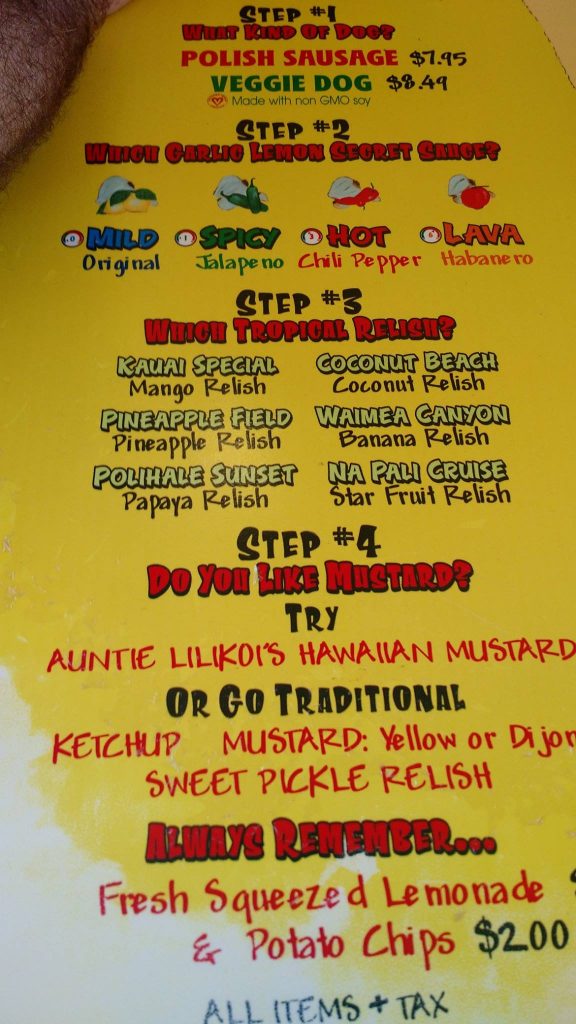 STEP #1
WHAT KIND OF DOG?
POLISH SAUSAGE $7.95
VEGGIE DOG $8.49
Made with non GMO soy
STEP #2
WHICH GARLIC LEMON SECRET SAUCE?
MILD SPICY HOT LAVA
Original Jalapeno Chili Pepper Habanero
STEP #3
WHICH TROPICAL RELISH?
KAUAI SPECIAL COCONUT BEACH
Mango Relish Coconut Relish
PINEAPPLE FIELD WAIMEA CANYON
Pineapple Relish Banana Relish
POLIHALE SUNSET NA PALI CRUISE
Papaya Relish Star Fruit Relish
STEP #4
DO YOU LIKE MUSTARD?
TRY
AUNTIE LILIKOI'S HAWAIIAN MUSTARD
OR GO TRADITIONAL
KETCHUP MUSTARD: Yellow or Dijon
SWEET PICKLE RELISH
ALWAYS REMEMBER...
Fresh Squeezed Lemonade
& Potato Chips $2.00
ALL ITEMS + TAX